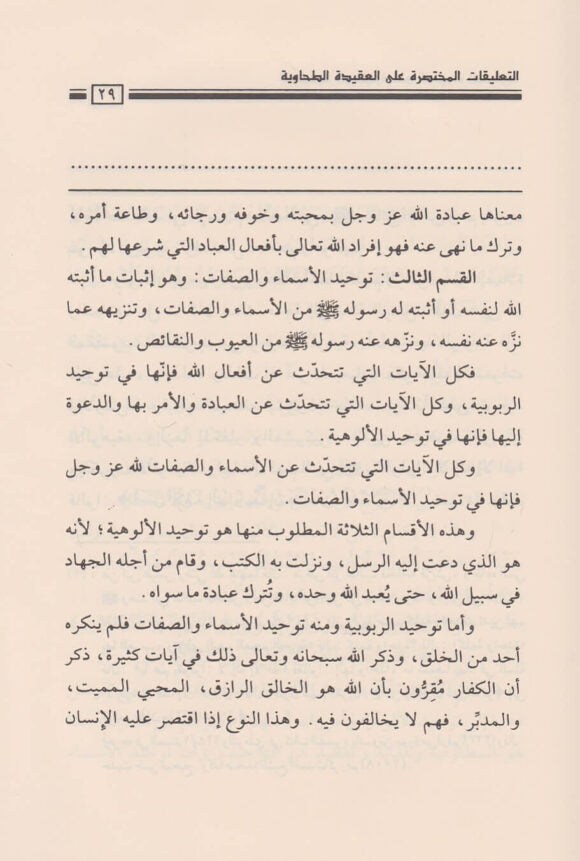 التعليقات المختصرة على العقيدة الطحاوية
٢٩
معناها عبادة الله عز وجل بمحبته وخوفه ورجائه، وطاعة أمره،
وترك ما نهى عنه فهو إفراد الله تعالى بأفعال العباد التي شرعها لهم.
القسم الثالث: توحيد الأسماء والصفات: وهو إثبات ما أثبته
الله لنفسه أو أثبته له رسوله ﷺ من الأسماء والصفات، وتنزيهه عما
نزَّه عنه نفسه، ونزّهه عنه رسوله ﷺ من العيوب والنقائص.
فكل الآيات التي تتحدّث عن أفعال الله فإنّها في توحيد
الربوبية، وكل الآيات التي تتحدّث عن العبادة والأمر بها والدعوة
إليها فإنها في توحيد الألوهية.
وكل الآيات التي تتحدّث عن الأسماء والصفات لله عز وجل
فإنها في توحيد الأسماء والصفات.
وهذه الأقسام الثلاثة المطلوب منها هو توحيد الألوهية؛ لأنه
هو الذي دعت إليه الرسل، ونزلت به الكتب، وقام من أجله الجهاد
في سبيل الله، حتى يُعبد الله وحده، وتُترك عبادة ما سواه.
وأما توحيد الربوبية ومنه توحيد الأسماء والصفات فلم ينكره
أحد من الخلق، وذكر الله سبحانه وتعالى ذلك في آيات كثيرة، ذكر
أن الكفار مُقِرُّون بأن الله هو الخالق الرازق، المحيي المميت،
والمدبِّر، فهم لا يخالفون فيه. وهذا النوع إذا اقتصر عليه الإنسان